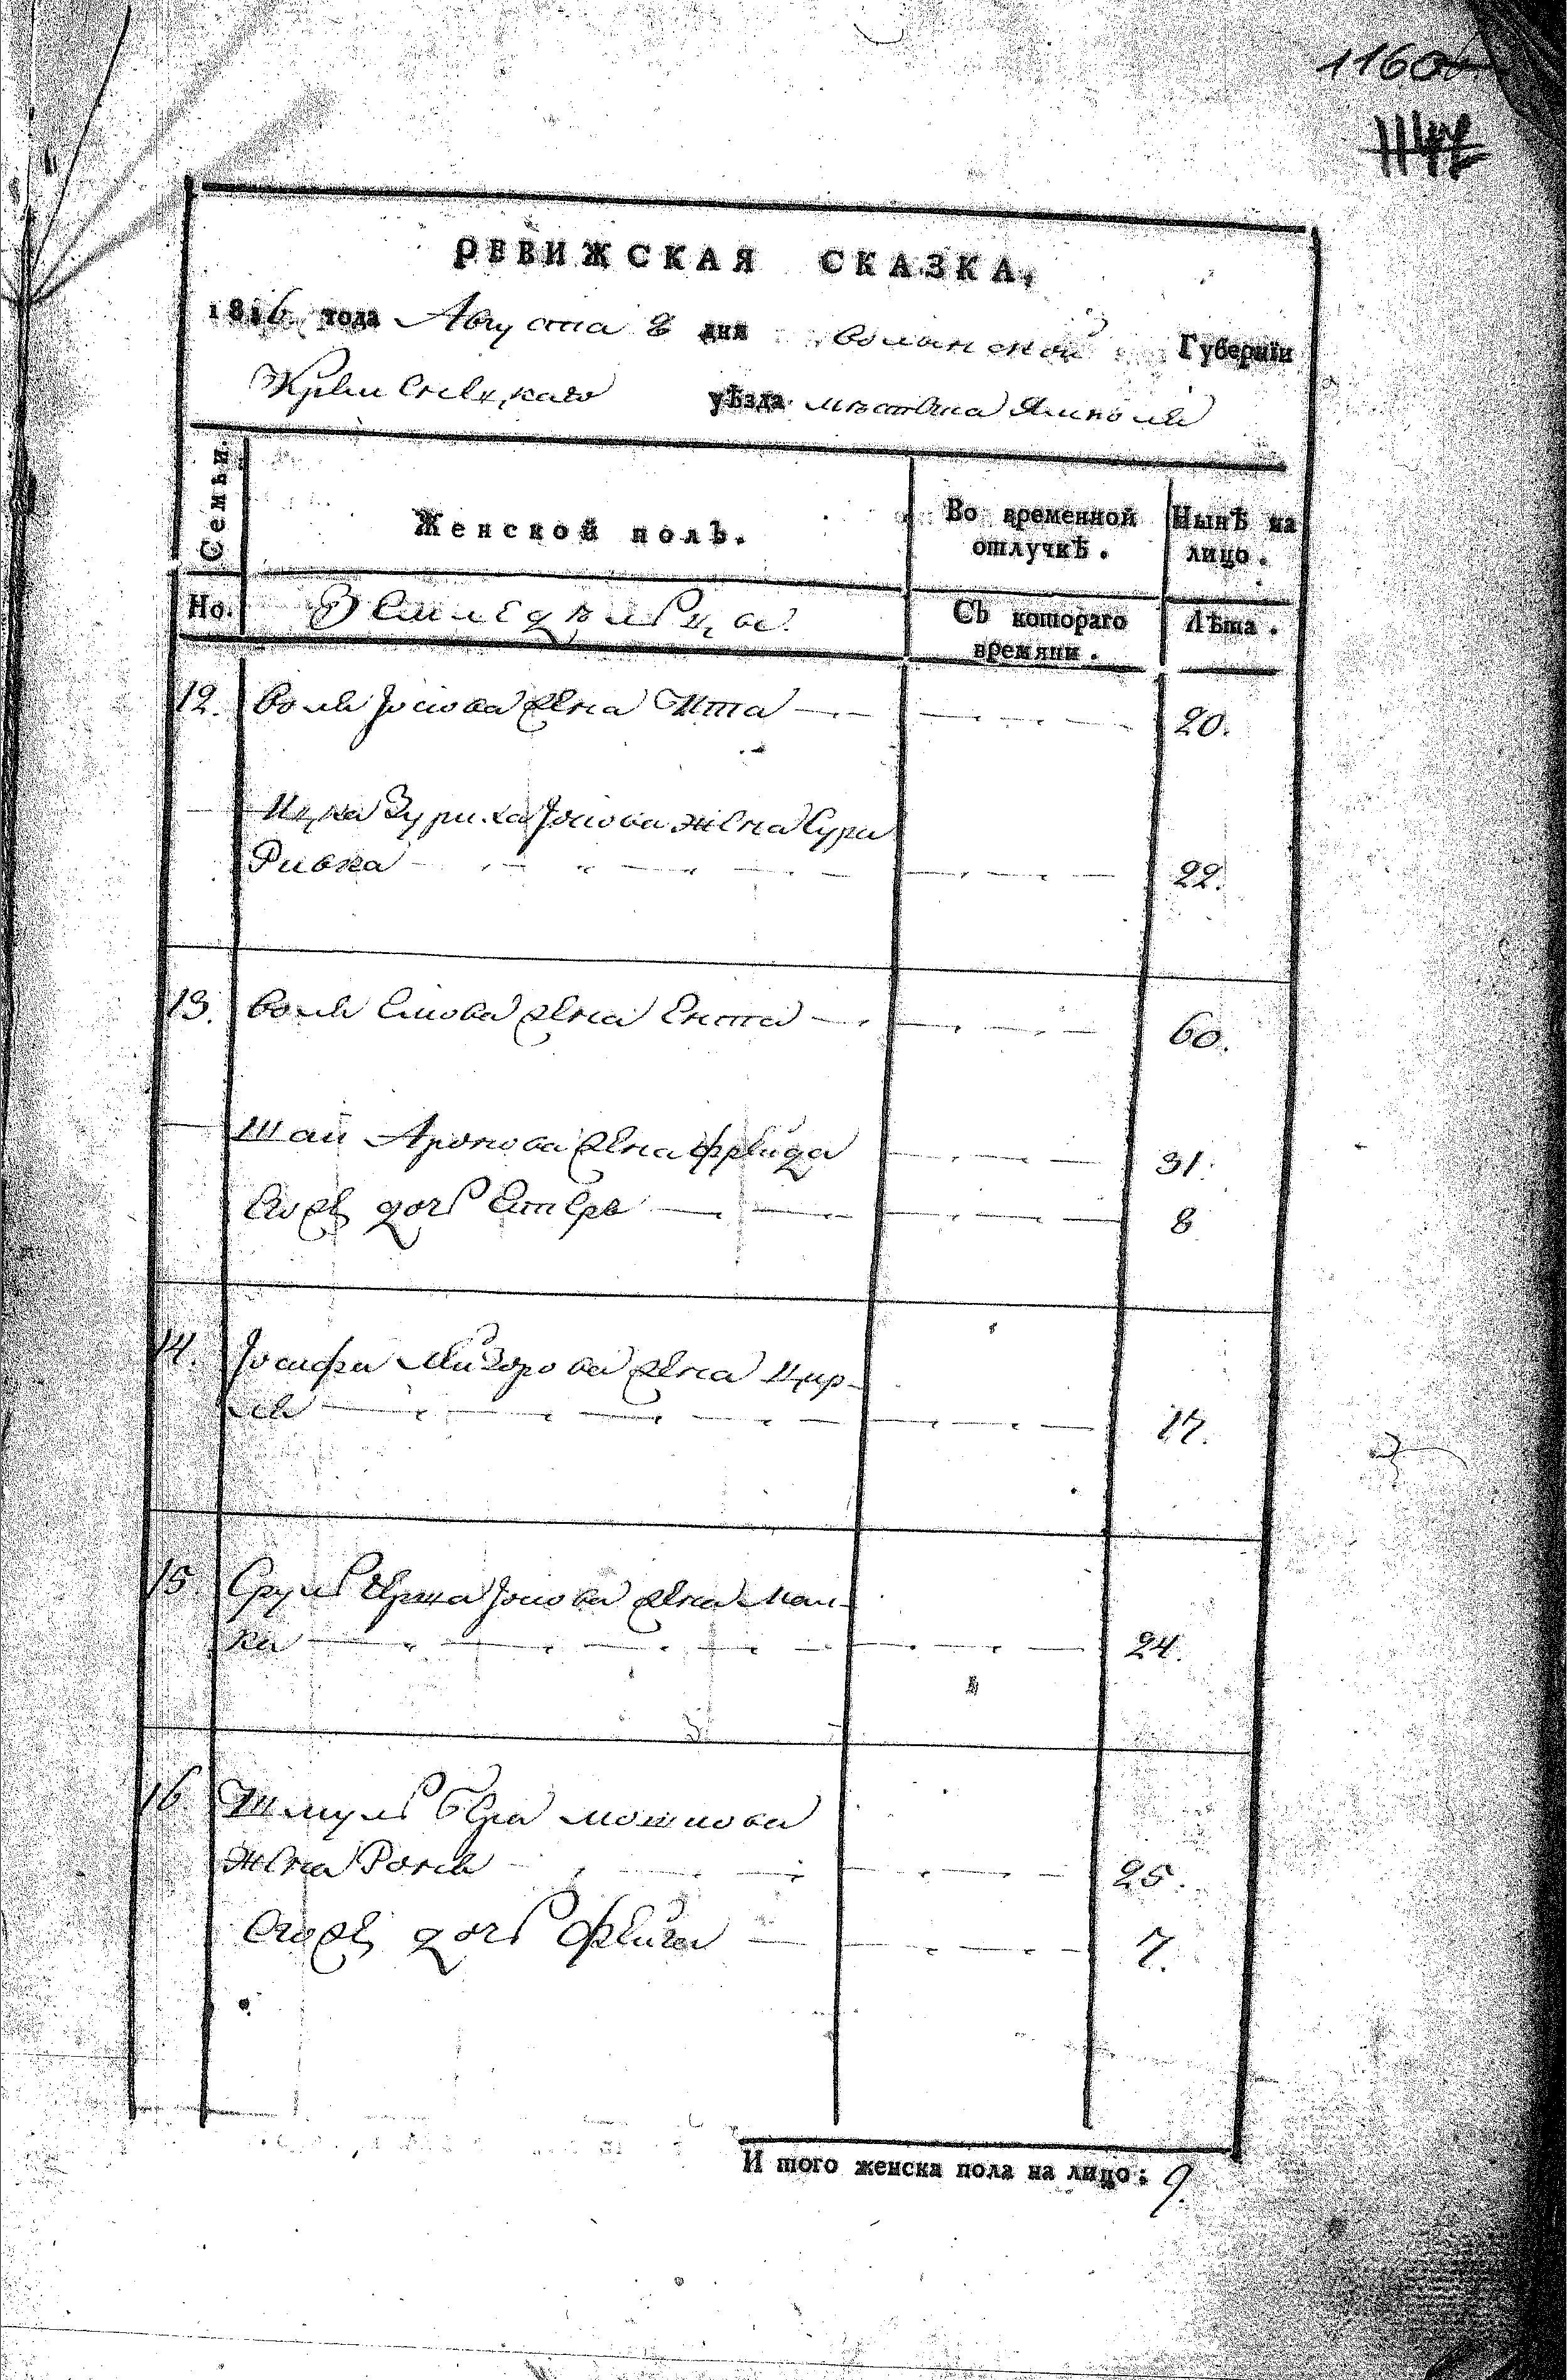 1160
РЕВИЖСКАЯ СКАЗКА,
1816 года Августа 8 дня Волынской Губернїи
Кременецкаго уѣзда местечка Ямполя
Семьи. Женской полъ. Во временной отлучкѣ. Нынѣ на лицо.
Но. Съ котораго времяни. Лѣта.
12. Воля Iосiова жена Ита 20.
Ицка Зуриха Iосiова жена Сура
Ривка 22.
13. Воля жена 60.
Шаи Аронова жена Фрейда 31.
Евоже дочь Естеръ 8
14. Iосифа жена Цир-
ля 17.
15. Сруль Iосiова жена Мал-
ка 24.
16. Шмуль Бера Мошкова
жена Рохля 25.
Евоже дочь Фейга 7.
И того женска пола на лицо: 9.